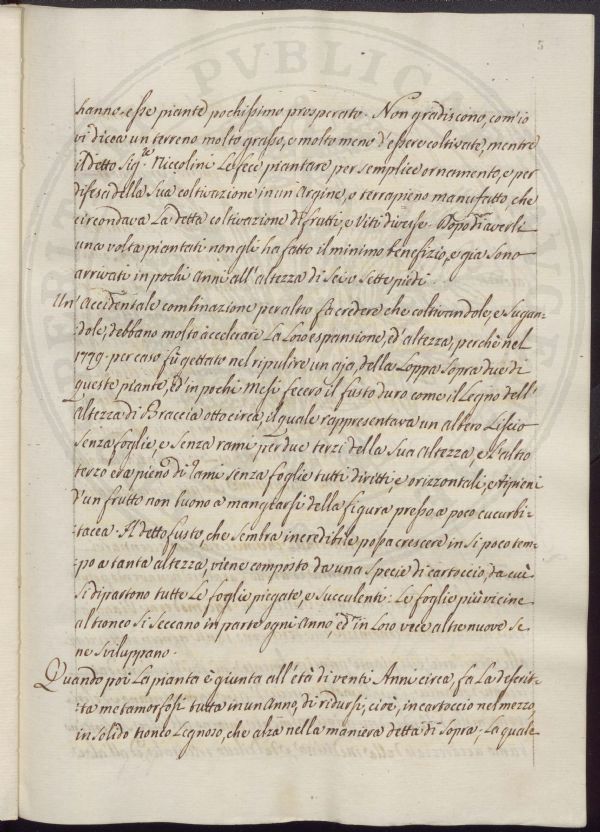 5
hanno esse piante pochissimo prosperato. Non gradiscono, com'io
vi dicea un terreno molto grasso, e molto meno d'essere coltivate, mentre
il detto Sig.re Niccolini Le fece piantare per semplice ornamento, e per
difesa della Sua coltivazione in un'Argine, o terrapieno manufatto, che
circondava La detta coltivazione di frutti, e Viti diverse. Dopo di averli
una volta piantati non gli ha fatto il minimo benefizio, e già sono
arrivati in pochi Anni all'altezza di Sei o Sette piedi.
Un' Accidentale combinazione per altro fa credere che coltivandole, e Sugan=
dole, debbano molto accelerare La Loro espansione, ed'altezza, perchè nel
1779. per caso fù gettato nel ripulire un'aja, della Loppa Sopra due di
queste piante, ed'in pochi Mesi fecero il fusto duro come il Legno dell'
Altezza di Braccia otto circa, il quale rappresentava un albero Liscio
Senza foglie, e Senza rami per due terzi della Sua altezza, e L'altro
terzo era pieno di rami senza foglie tutti diritti, e orizzontali, e ripieni
d'un frutto non buono a mangiarsi della figura presso a poco cucurbi=
tacea. Il detto fusto, che Sembra incredibile possa crescere in Si poco tem=
po a tanta altezza, viene composto da una Specie di cartoccio, da cui
Si dipartono tutte Le foglie piegate, e Succulenti: Le foglie più vicine
al tronco Si Seccano in parte ogni Anno, ed' in Loro vece altre nuove Se
ne Sviluppano.
Quando poi La pianta è giunta all'età di venti Anni circa, fa La descrit=
ta metamorfosi tutta in un Anno, di ridursi, cioè, in cartoccio nel mezzo,
in Solido tronco Legnoso, che alza nella maniera detta di Sopra; La quale